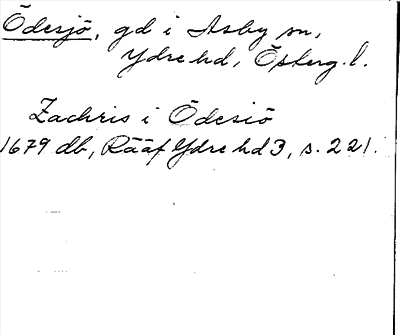 Ödesjö, gd i Asby sn,
Ydre hd, Österg. l.
Zachris i Ödesiö
1679 db, Rääf Ydre hd 3, s. 221.